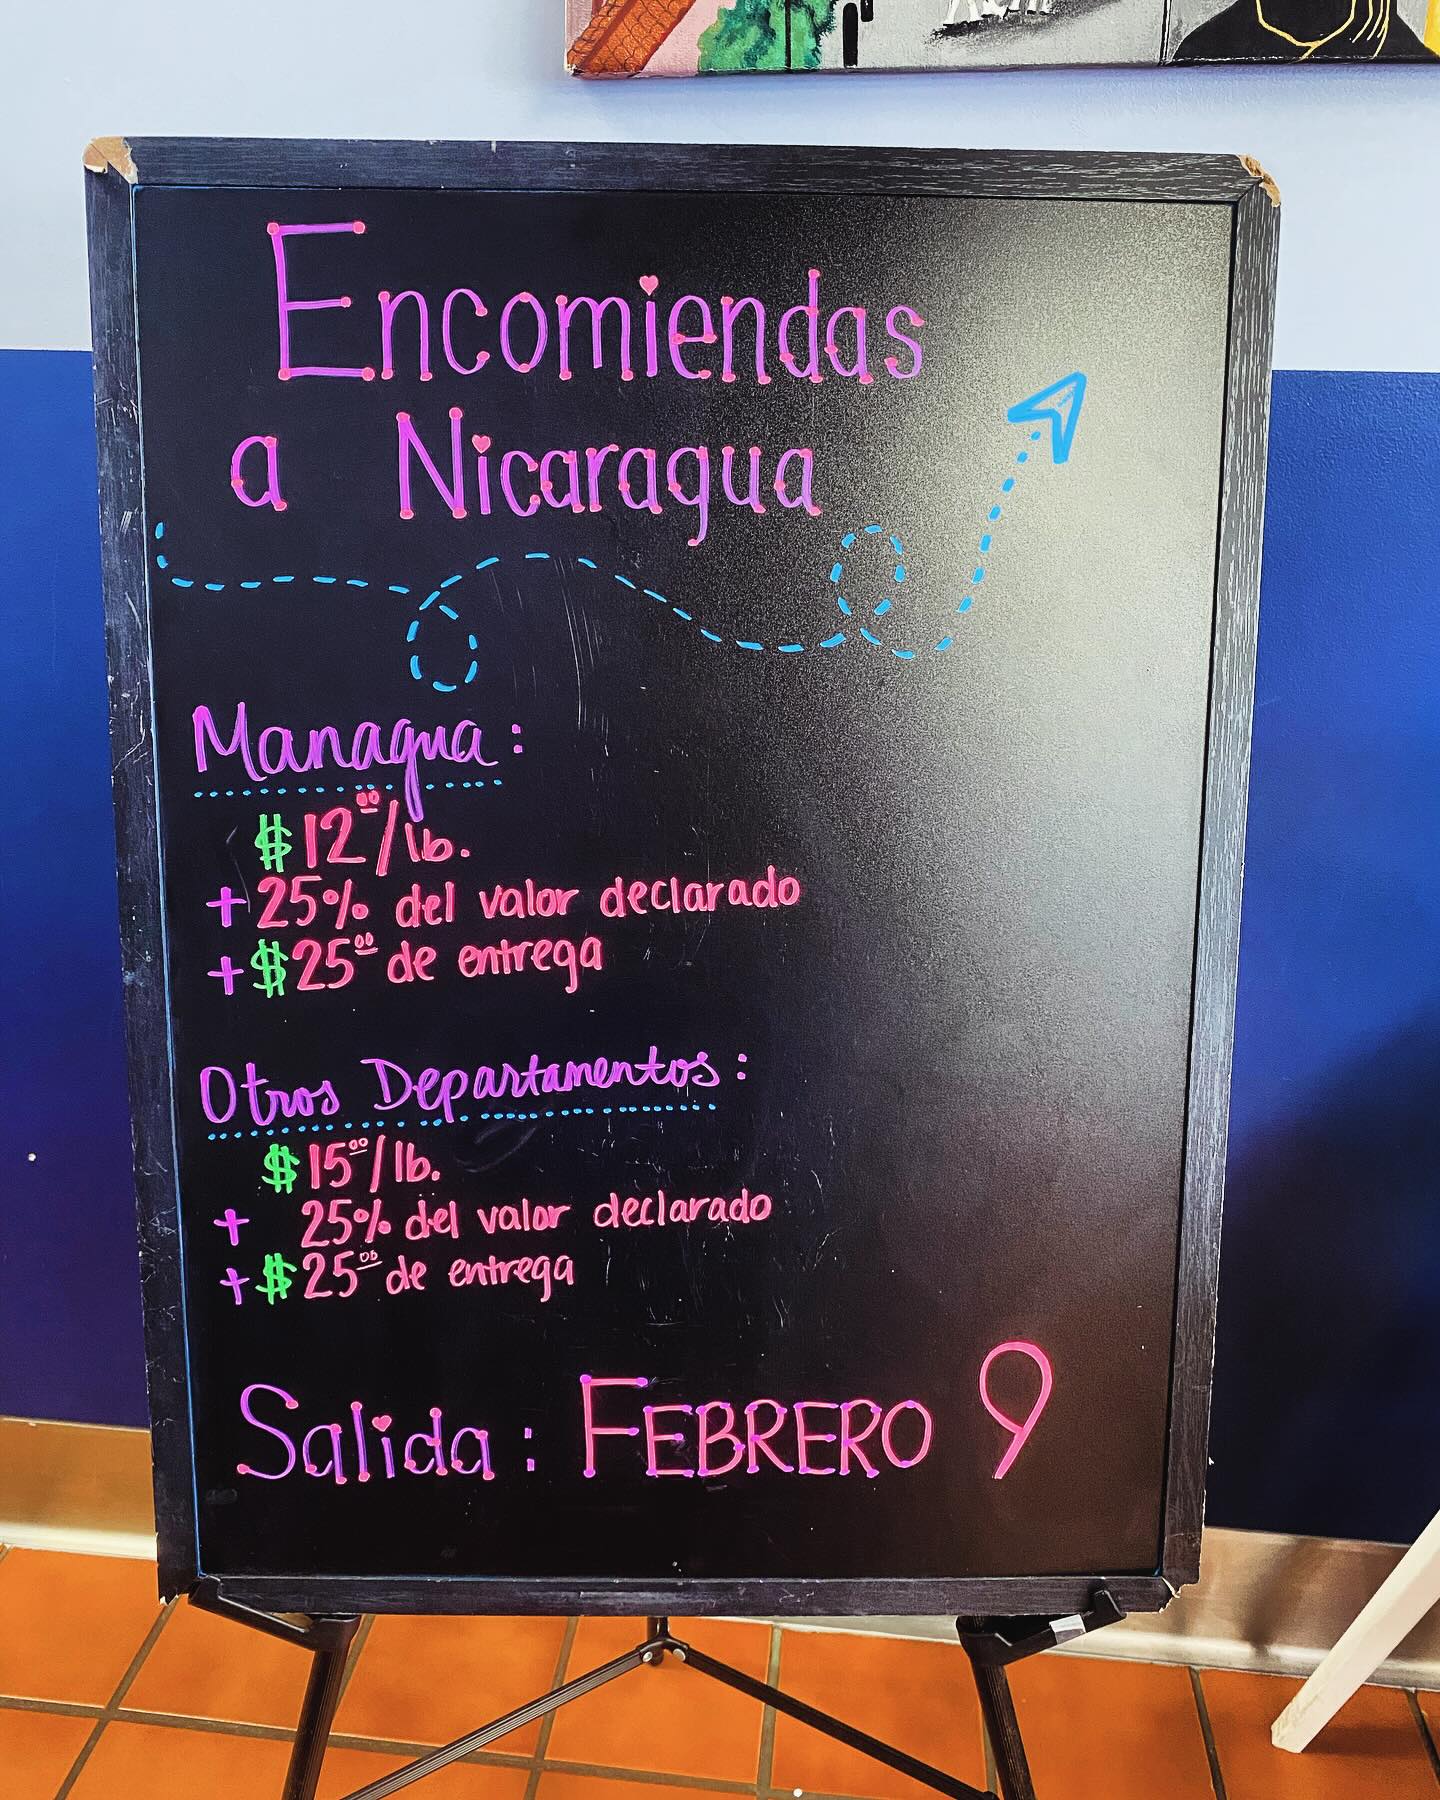 Encomiendas
a Nicaragua
Managua:
$12.00/lb.
+ 25% del valor declarado
+ $25.00 de entrega
Otros Departamentos:
$15.00/lb.
+ 25% del valor declarado
+ $25.00 de entrega
Salida: FEBRERO 9